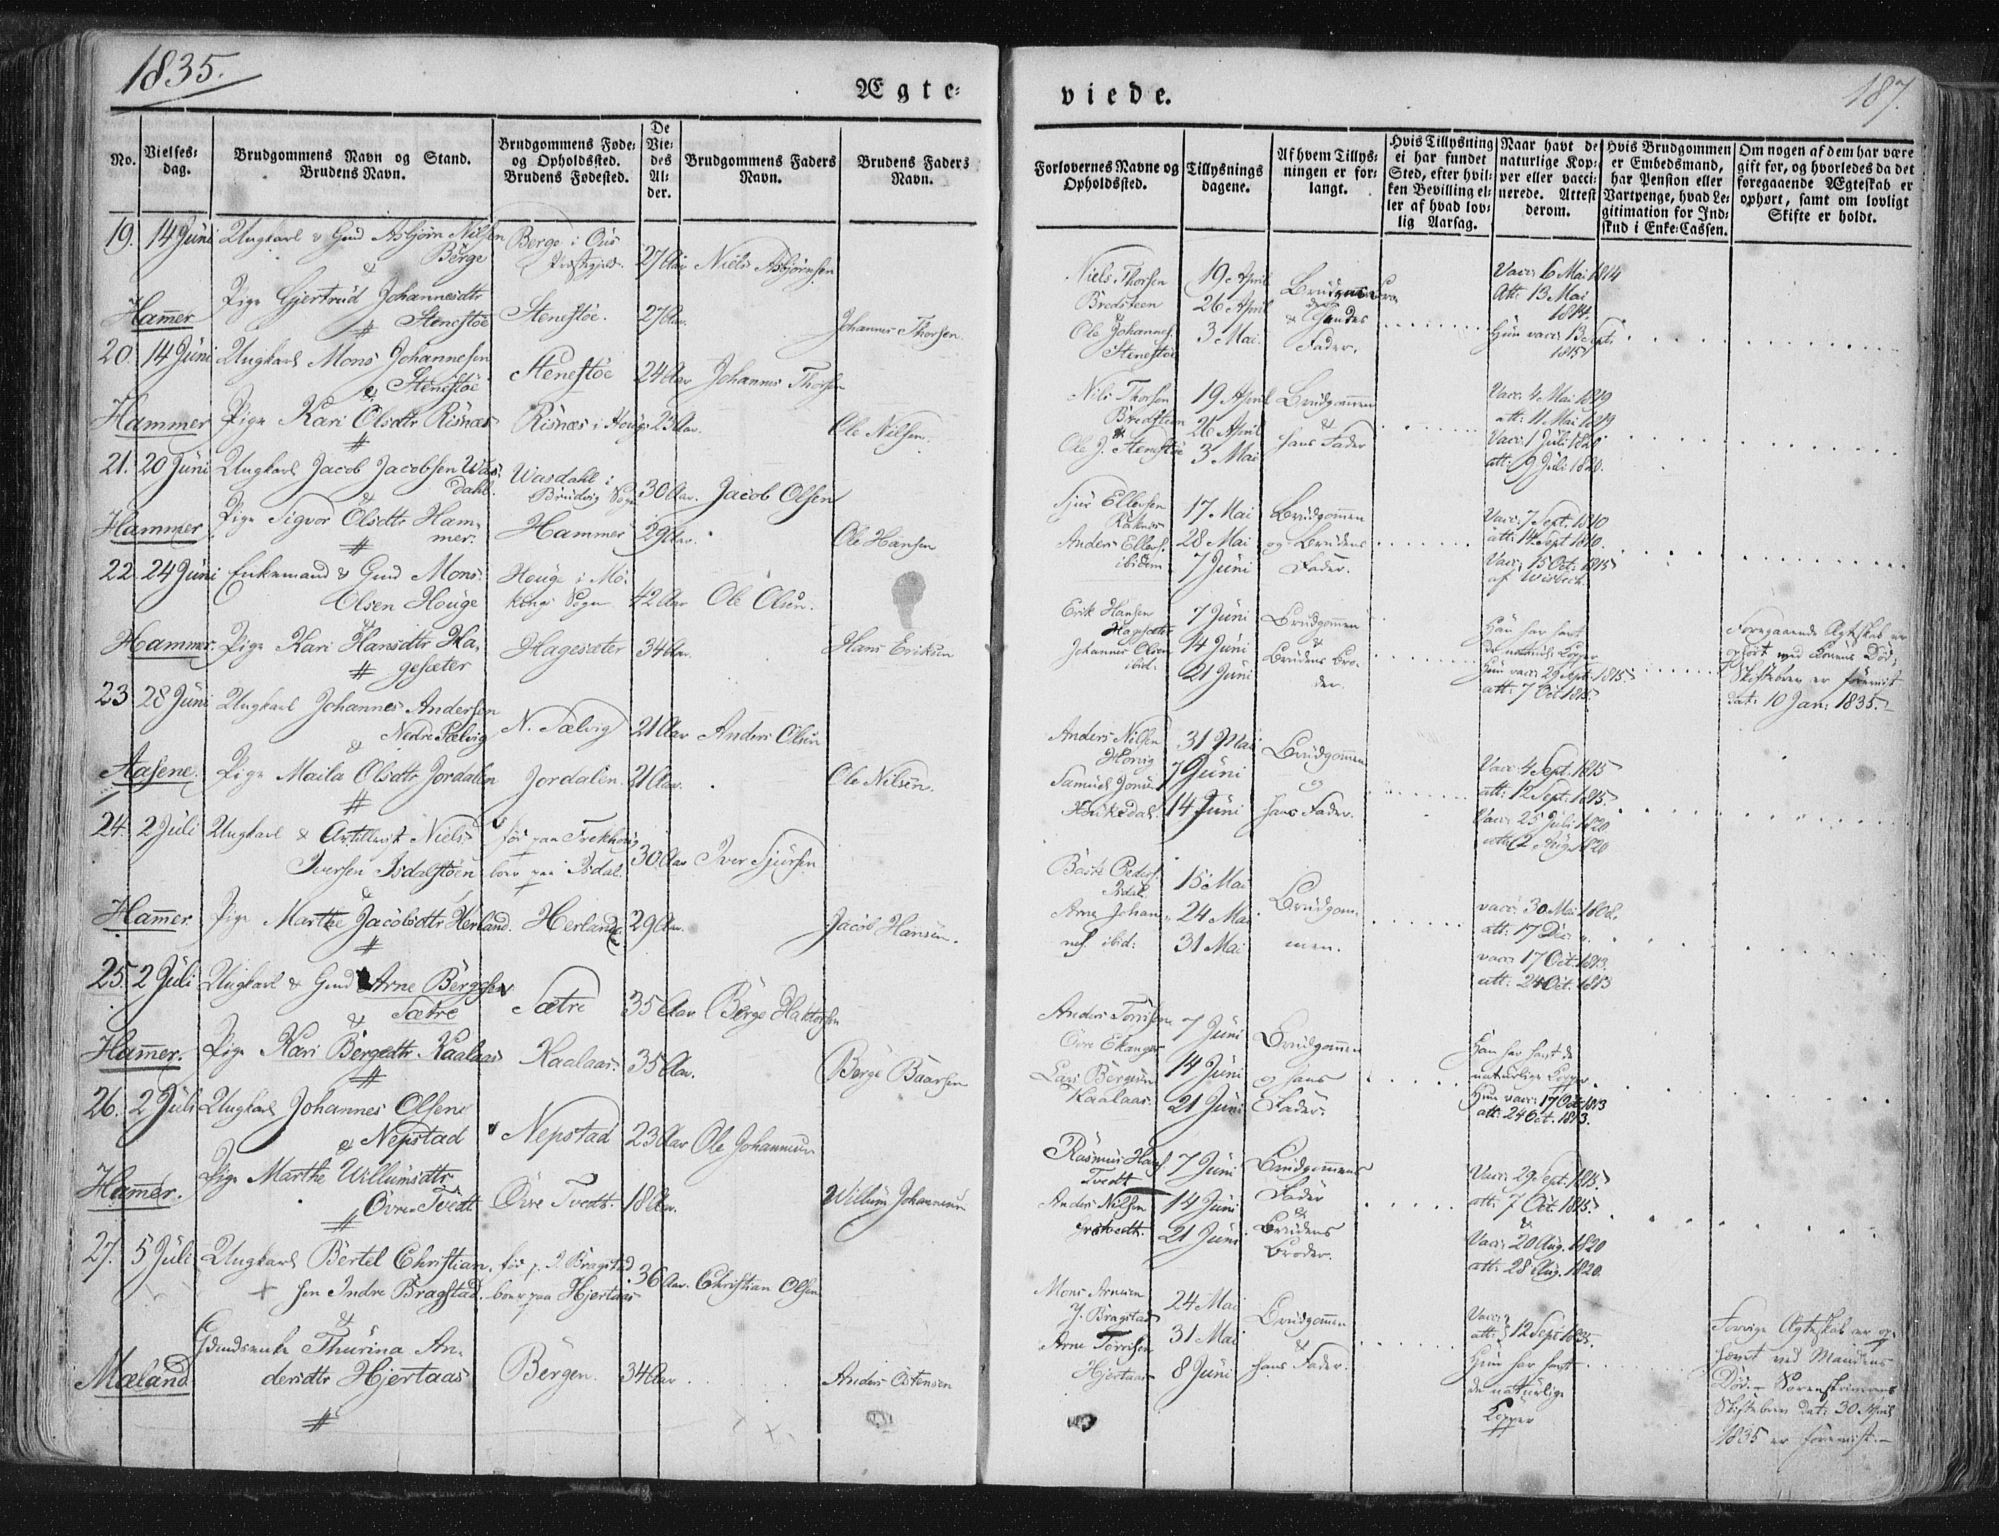 1835.
Ægte-
No.
Vielses-
dag.
Brudgommens Navn og Stand.
Brudens Navn.
Brudgommens Føde-
og Opholdssted.
Brudens Fødested.
De
Vie-
des
Al-
der.
Brudgommens Faders
Navn.
Brudens Faders
Navn.
19. 14 Juni Ungkarl & Gmd Asbjörn Nilsen
Börge
Berge i Ous
Præstgjeld.
27 Aar Niels Asbjörnsen
&
Pige Gjertrud Johannesdtr
Hammer
Stenestöe
Stenestöe.
27 Aar.
Johannes Thorsen.
20. 14 Juni Ungkarl Mons Johannesen
& Stenestöe
Stenestöe
24 Aar Johannes Thorsen
Hammer Pige Kari Olsdtr Risnæs
Risnæs i Houg
23 Aar.
Ole Nilsen.
21. 20 Juni Ungkarl Jacob Jacobsen Was-
dahl.
Wasdahl i
Bruvig Sogn
30 Aar. Jacob Olsen
&
Hammer Pige Sigvor Olsdtr Ham-
mer.
Hammer 29 Aar.
Ole Hansen
22. 24 Juni Enkemand & Gmd Mons
Olsen Houge
Houge i Mö-
kings Sogn
42 Aar Ole Olsen.
&
Hammer. Pige Kari Hansdtr Ha-
gesæter
Hagesæter 34 Aar.
Hans Eriksen
23 28 Juni Ungkarl Johannes Andersen
Nedre Sælvig
N. Sælvig 21 Aar Anders Olsen
&
Aasene. Pige Maila Olsdtr Jordalen
Jordalen. 21 Aar.
Ole Nilsen.
24. 2 Juli Ungkarl & Artillerist Niels
Iversen Isdalstöen
för paa Trekhoug
boer paa Isdal.
30 Aar Iver Sjursen
&
Hammer. Pige Marthe Jacobsdtr Herland.
Herland. 29 Aar.
Jacob Hansen.
25. 2 Juli Ungkarl & Gmd Arne Börgesen
Sætre
Sætre 35 Aar Börge Haktorsen
&
Hammer. Pige Kari Börgedtr. Kaalaas
Kaalaas. 35 Aar.
Börge Baarsen
26. 2 Juli Ungkarl Johannes Olsen
& Nepstad
Nepstad 23 Aar Ole Johannesen
Hammer. Pige Marthe Willumsdtr
Övre Tvedt
Övre Tvedt. 18 Aar.
Willum Johannesen
27. 5 Juli Ungkarl Bertel Christian-
sen Indre Bragstad.
föd p. I. Bragstad
boer paa Hjertaas
36 Aar. Christian Olsen
&
Gmdsenke Thurina An-
Mæland
dersdtr Hjertaas
Bergen. 34 Aar.
Anders Östensen
viede.
187.
Forlovernes Navne og
Opholdssted.
Tillysnings
dagene.
Af hvem Tillys-
ningen er for-
langt.
Hvis Tillysning
ei har fundet
Sted, efter hvil-
ken Bevilling el-
ler af hvad lov-
lig Aarsag.
Naar havt de
naturlige Kop-
per eller vacci-
nerede. Attest
derom.
Hvis Brudgommen
er Embedsmand,
har Pension eller
Vartpenge, hvad Le-
gitimation for Ind-
skud i Enke-Cassen.
Om nogen af dem har være
gift før, og hvorledes da det
foregaaende Ægteskab er
ophørt, samt om lovligt
Skifte er holdt.
Niels Thorsen
Bredsteen
&
Ole Johannes.
Stenestöe
19 April
26 April
3 Mai.
Fader.
Vacc: 6 Mai 1814
Att: 13 Mai
1814.
Hun vacc: 13 Sept.
1815
Nils Thorsen
Bredsteen
&
Ole J. Stenestöe
19 April
26 April
3 Mai
Brudgommen
&
hans Fader
Vacc: 4 Mai 1819
att: 11 Mai 1819
Vacc: 1 Juli 1820
att: 9 Juli 1820.
Sjur Ellersen
Röknes
Anders Ellers.
ibidem
17 Mai
28 Mai
7 Juni
Brudgommen
og Brudens
Fader.
Vacc: 7 Sept. 1810
att: 14 Sept 1810.
Vacc: 15 Oct: 1815
af Wisbech.
Erik Hansen
Hagesæter
Johannes Olsen
ibid.
7 Juni
14 Juni
21 Juni
Brudgommen
&
Brudens Bro-
der.
Han har havt
de naturlige Kopper
Hun vacc: 29 Sept. 1815
att: 7 Oct 1815.
Foregaaende Ægteskab er
ophört ved Konens Död;
Skiftebrev er foreviist
dat: 10 Jan: 1835.
Anders Nilsen
Hönig
Samuel Jons.
31 Mai
7 Juni
14 Juni
Brudgommen
og
hans Fader.
Vacc: 4 Sept. 1815
att: 12 Sept. 1815.
Vacc: 25 Juli 1820
att: 2 Aug. 1820
Baard Peders.
Isdal
Arne Johan-
nes. ibid:
15 Mai
24 Mai
31 Mai
Brudgom-
men.
vacc: 30 Mai 1808.
att: 17 Dec:
vacc: 17 Oct: 1813.
att: 24 Oct. 1813
Övre Ekanger
Lars Börgesen
Kaalaas.
7 Juni
14 Juni
21 Juni
Brudgommen
og hans
Fader.
Han har havt de
naturlige Kopper.
Hun vacc: 17 Oct 1813
att: 24 Oct. 1813.
Rasmus Hans.
Tvedt
Anders Nilsen
7 Juni
14 Juni
21 Juni
Brudgommens
Fader
&
Brudens
Broder.
Vacc: 29 Sept. 1815.
att: 7 Oct. 1815
&
Vacc: 20 Aug. 1820
att: 28 Aug. 1820.
Mons Arnesen
I. Bragstad
Arne Torrisen
Hjertaas
24 Mai
31 Mai
8 Juni
Brudgommen
&
hans Fader.
Vacc:
att: 12 Sept 1835.
Hun har havt
de naturlige
Kopper
Forrige Ægteskab er op-
hævet ved Mandens
Död. Sorenskriverens
Skiftebrev dat: 30 April
1835 er foreviist.